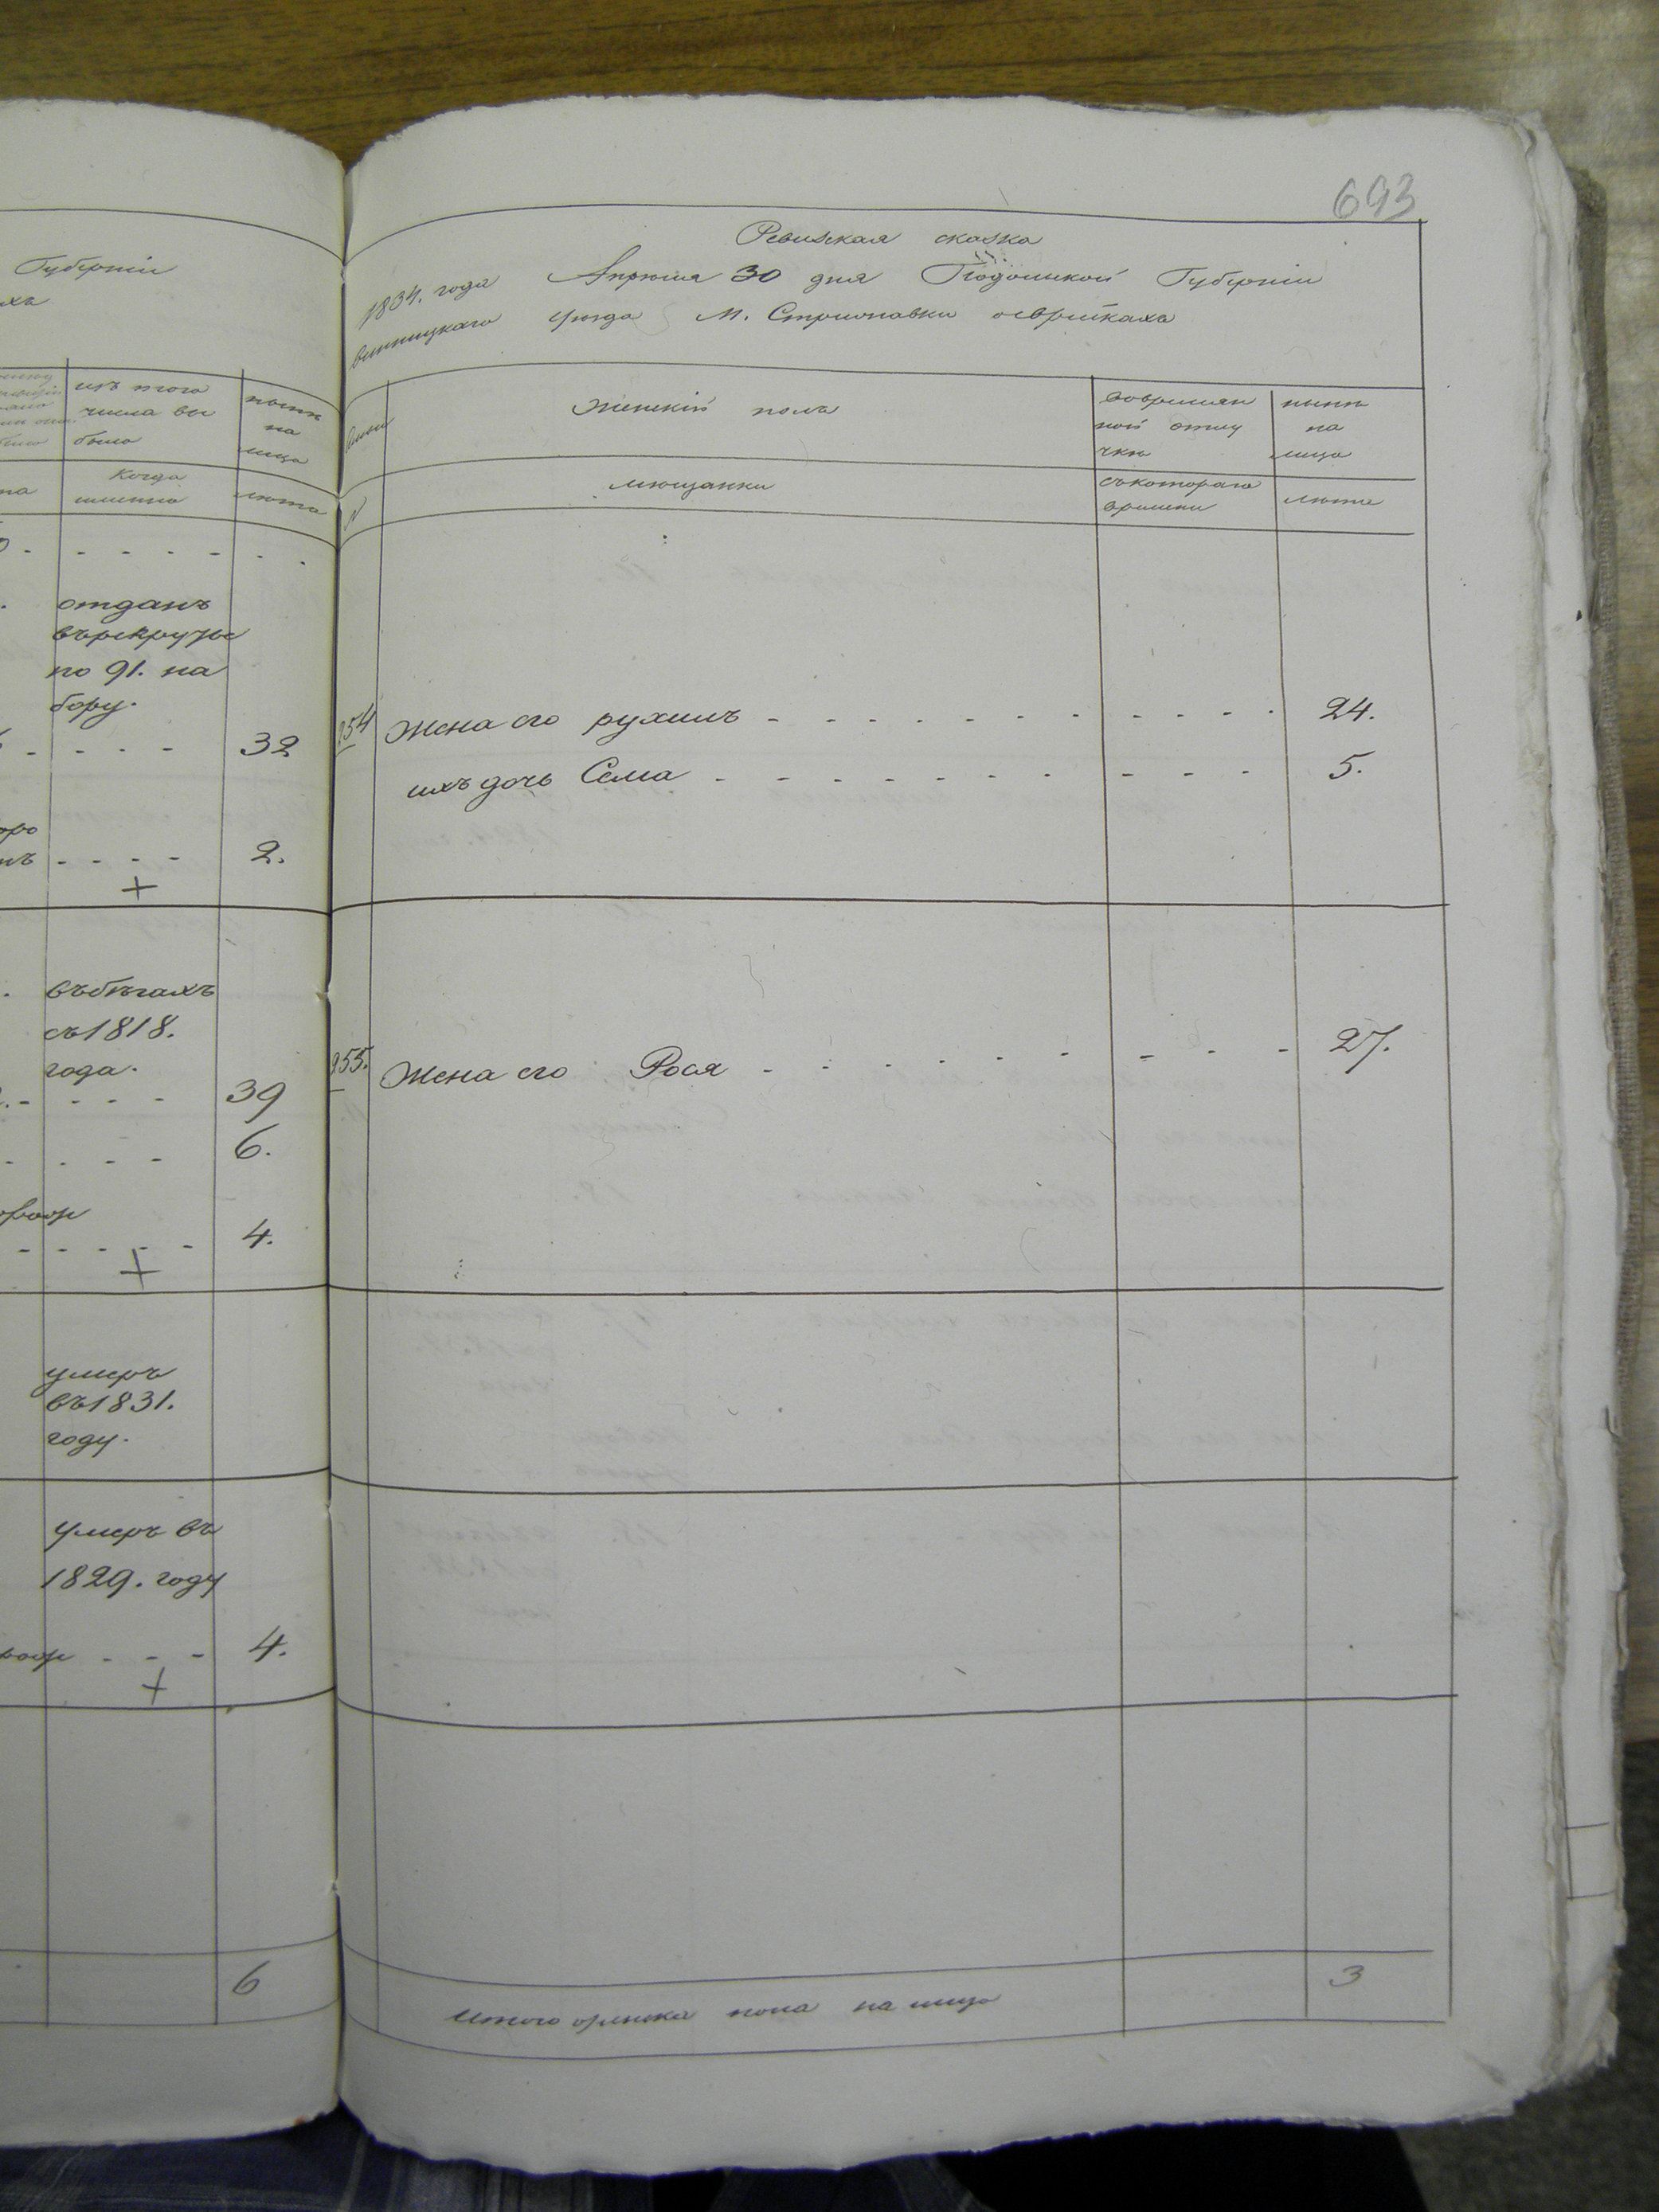 Губерніи
ихъ
изъ того
числа вы
было
ныне
на
лицо
Когда
именно
лета
отданъ
върекруты
по 91. на
бору.
32
2.
+
въбегахъ
съ1818.
года.
39
6.
4.
+
умеръ
въ1831.
году.
умеръ въ
1829. году
4.
+
6
693
Ревизская сказка
1834. года Апреля 30 дня Подольской Губерніи
винницкаго уезда М. Стрижавки оевреяхъ
семьи
Женскій полъ
вовремян
ной отлу
чке
ныне
на
лицо
N
мещанки
съкотораго
времени
лета
254 Жена его рухля - - - - - - - - - - 24.
ихъ дочь Сема - - - - - - - - - - 5.
255. Жена его Рося - - - - - - - - - 27.
Итого женска пола на лицо
3